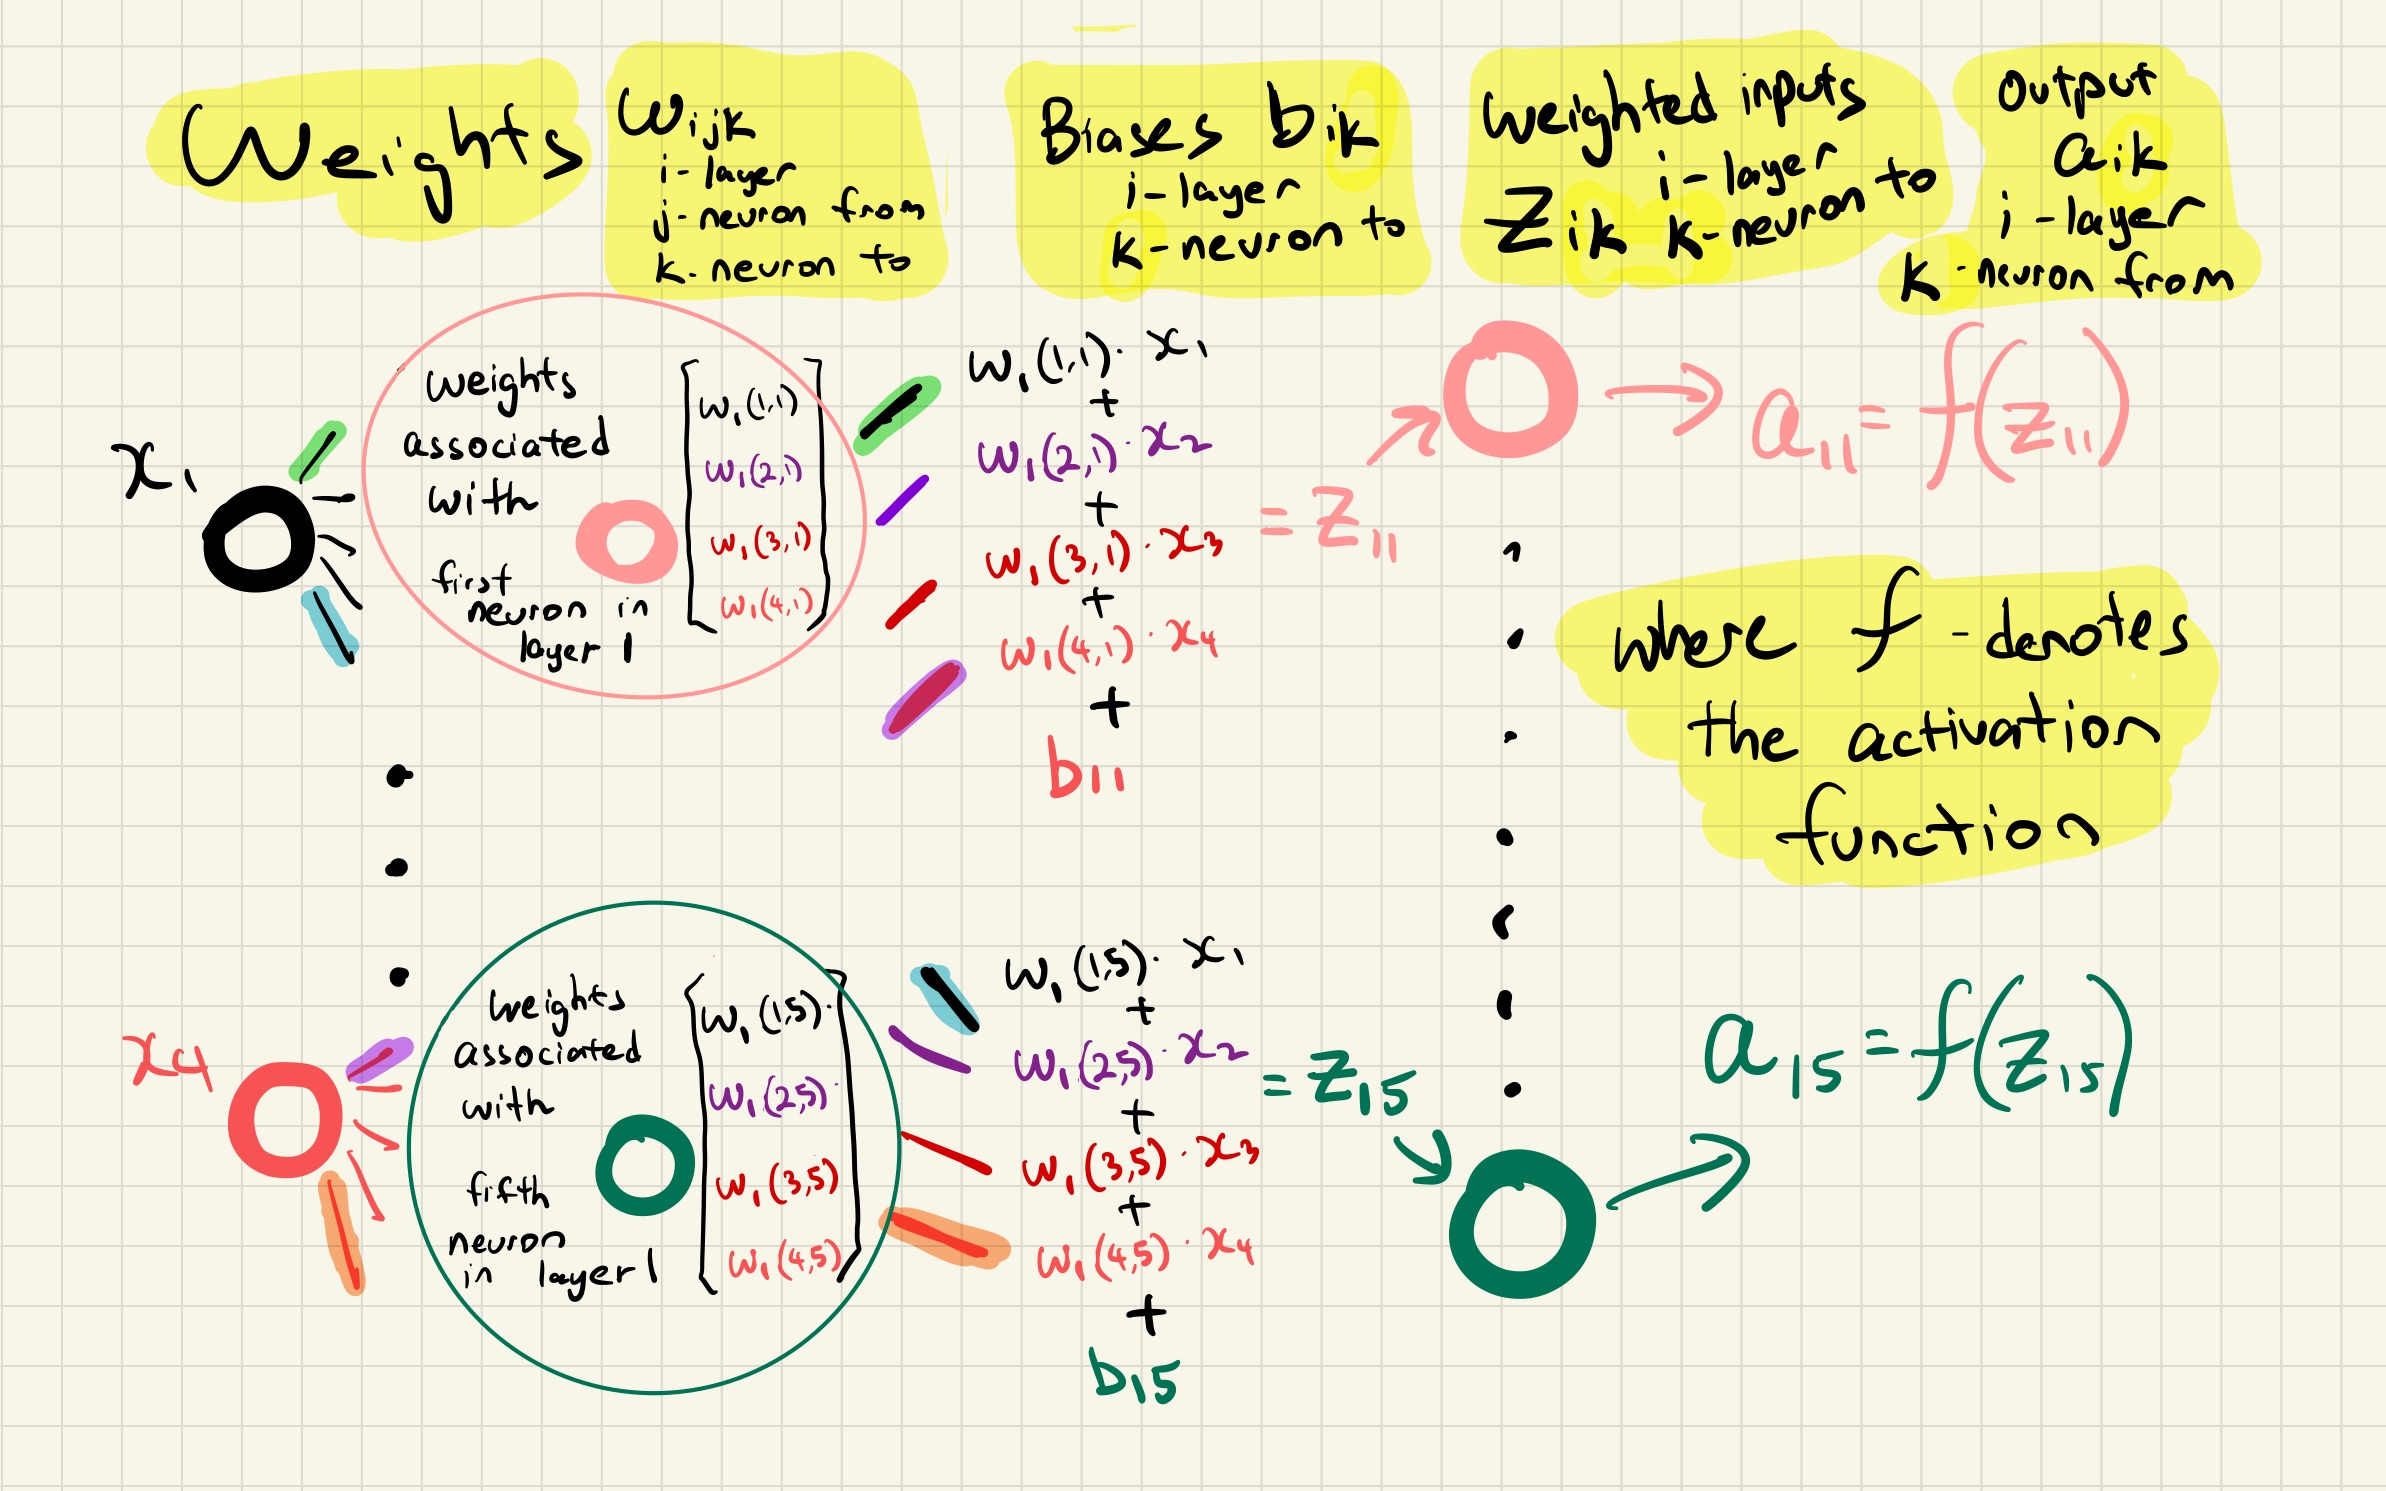 Weights
Wijk
i - layer
j - neuron from
k - neuron to
Biases bik
i - layer
k - neuron to
Weighted inputs
i - layer
Zik k - neuron to
output
aik
i - layer
k - neuron from
x1
weights
associated
with
first
neuron in
layer 1
w1(1,1)
w1(2,1)
w1(3,1)
w1(4,1)
w1(1,1) · x1
+
w1(2,1) · x2
+
w1(3,1) · x3
+
w1(4,1) · x4
+
b11
= z11
a11 = f(z11)
where f - denotes
the activation
function
x4
weights
associated
with
fifth
neuron
in layer 1
w1(1,5)·
w1(2,5)·
w1(3,5)
w1(4,5)
w1(1,5) · x1
+
w1(2,5) · x2
+
w1(3,5) · x3
+
w1(4,5) · x4
+
b15
= z15
a15 = f(z15)